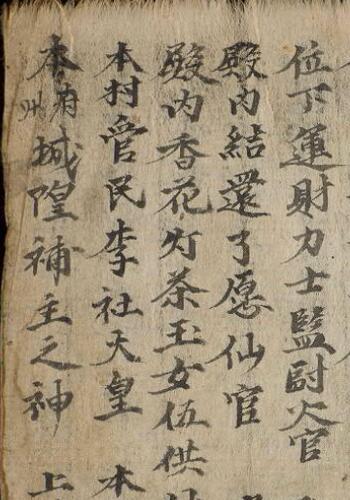 位下運財力士監尉大官
殿内結還了愿仙官
殿内香花灯茶玉女伍供
本村管民李社天皇 本
本府州城隍補主之神 上